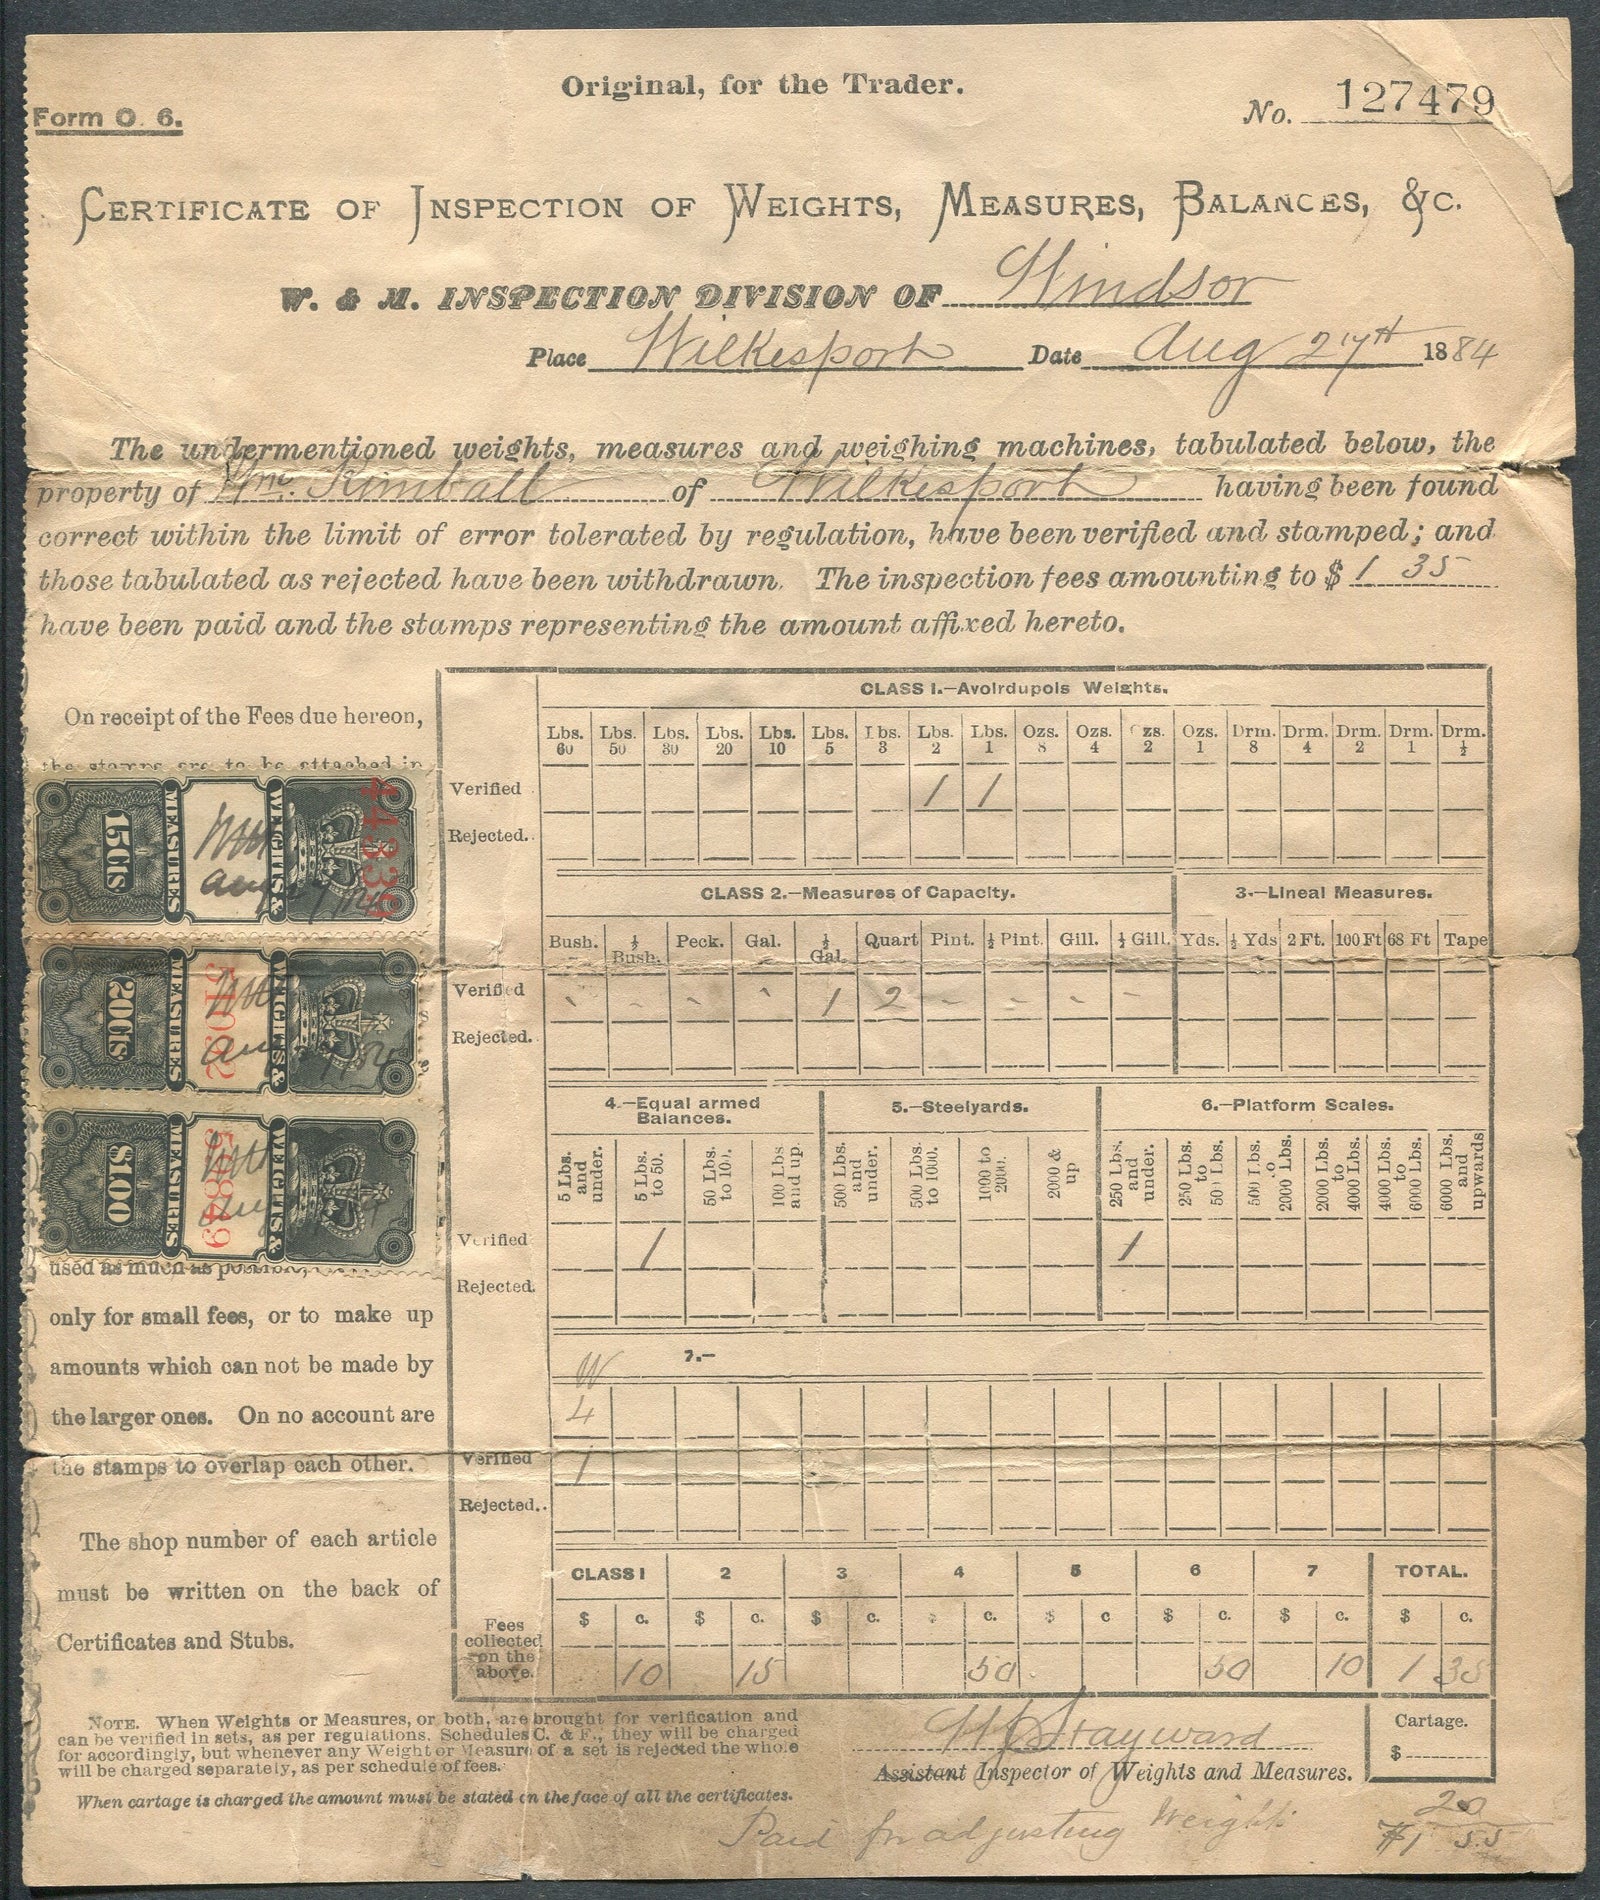 Original, for the Trader.
Form O. 6.
No. 127479
CERTIFICATE OF INSPECTION OF WEIGHTS, MEASURES, BALANCES, &C.
W. & M. INSPECTION DIVISION OF Windsor
Place Wilkesport Date Aug 27th 1884
The undermentioned weights, measures and weighing machines, tabulated below, the
property of Wm. Kimball of Wilkesport having been found
correct within the limit of error tolerated by regulation, have been verified and stamped; and
those tabulated as rejected have been withdrawn. The inspection fees amounting to $ 1 35
have been paid and the stamps representing the amount affixed hereto.
On receipt of the Fees due hereon,
the stamps are to be attached in
15Cts. MEASURES WEIGHTS &
Aug 27/84
20Cts. MEASURES 51092 WEIGHTS &
Aug 27/84
$1.00 MEASURES 50849 WEIGHTS &
used as much as possible,
only for small fees, or to make up
amounts which can not be made by
the larger ones. On no account are
the stamps to overlap each other.
The shop number of each article
must be written on the back of
Certificates and Stubs.
CLASS 1.—Avoirdupois Weights.
Lbs. 60 Lbs. 50 Lbs. 30 Lbs. 20 Lbs. 10 Lbs. 5 Lbs. 3 Lbs. 2 Lbs. 1 Ozs. 8 Ozs. 4 Ozs. 2 Ozs. 1 Drm. 8 Drm. 4 Drm. 2 Drm. 1 Drm. ½
Verified 1 1
Rejected..
CLASS 2.—Measures of Capacity. 3.—Lineal Measures.
Bush. ½ Bush. Peck. Gal. ½ Gal. Quart Pint. ½ Pint. Gill. ½ Gill. Yds. ½ Yds 2 Ft. 100 Ft 68 Ft Tape
Verified 1 2
Rejected.
4.—Equal armed Balances. 5.—Steelyards. 6.—Platform Scales.
5 Lbs. and under. 5 Lbs. to 50. 50 Lbs. to 100. 100 Lbs and up 500 Lbs. and under. 500 Lbs. to 1000. 1000 to 2000. 2000 & up 250 Lbs. and under. 250 Lbs. to 500 Lbs. 500 Lbs. to 2000 Lbs. 2000 Lbs. to 4000 Lbs. 4000 Lbs. to 6000 Lbs. 6000 Lbs. and upwards
Verified 1 1
Rejected.
W 7.—
4
Verified 1
Rejected..
CLASS 1 2 3 4 5 6 7 TOTAL.
$ c. $ c. $ c. $ c. $ c $ c. $ c. $ c.
Fees collected on the above. 10 15 50 50 10 1 35
NOTE. When Weights or Measures, or both, are brought for verification and
can be verified in sets, as per regulations. Schedules C. & F., they will be charged
for accordingly, but whenever any Weight or Measure of a set is rejected the whole
will be charged separately, as per schedule of fees.
When cartage is charged the amount must be stated on the face of all the certificates.
Hayward
Assistant Inspector of Weights and Measures.
Cartage.
$
Paid for adjusting Weights 20
$1 55